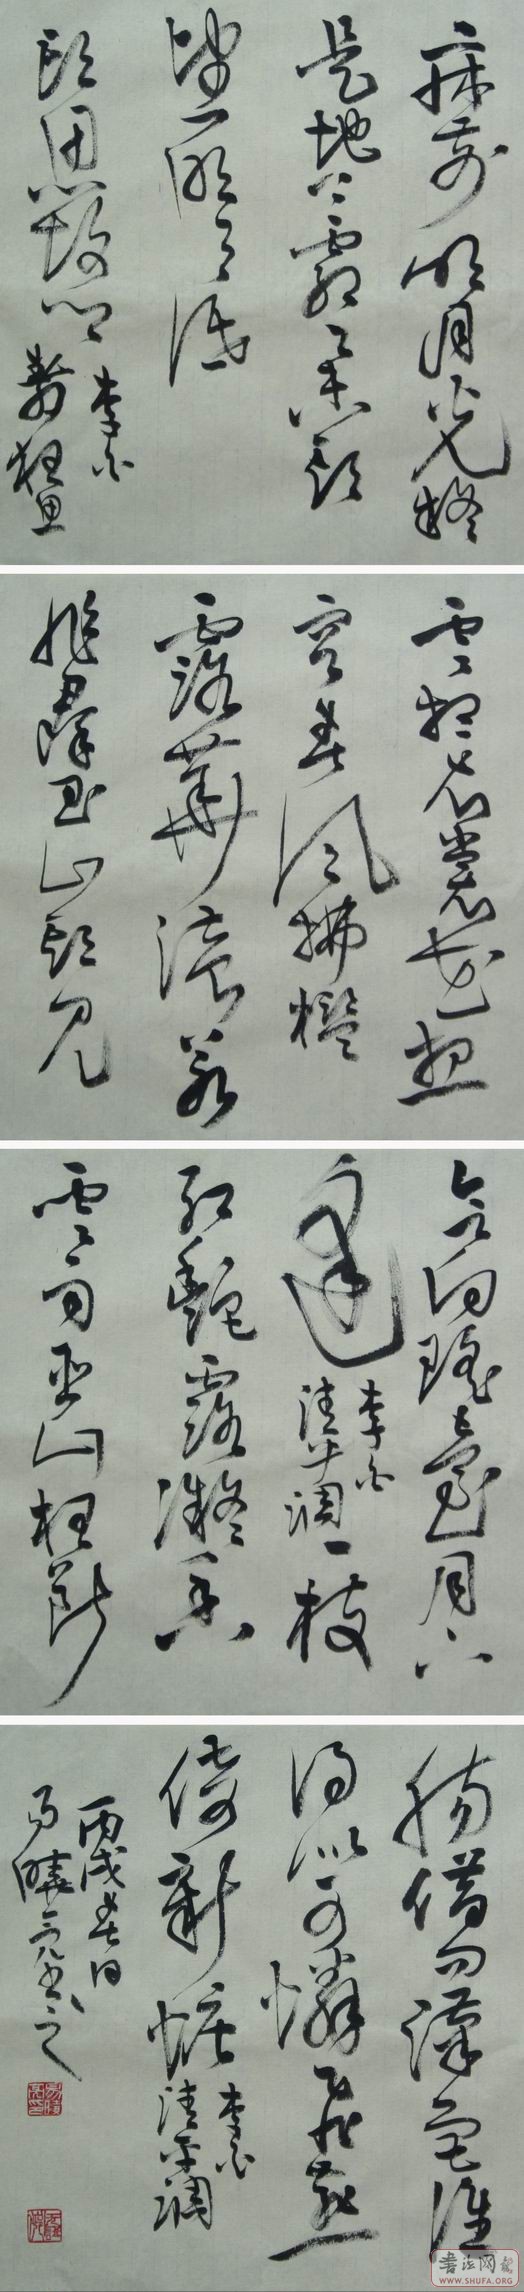 牀前明月光疑
是地上霜舉頭
望明月低
頭思故鄉
李白
靜夜思
雲想衣裳花想
容春風拂檻
露華濃若
非群玉山頭見
會向瑤臺月下
逢
李白
清平調
一枝
紅艷露凝香
雲雨巫山枉斷
腸借問漢宮誰
得似可憐飛燕
倚新妝
李白
清平調
丙戌春日
易曉亮書之
書法网
WWW.SHUFA.ORG